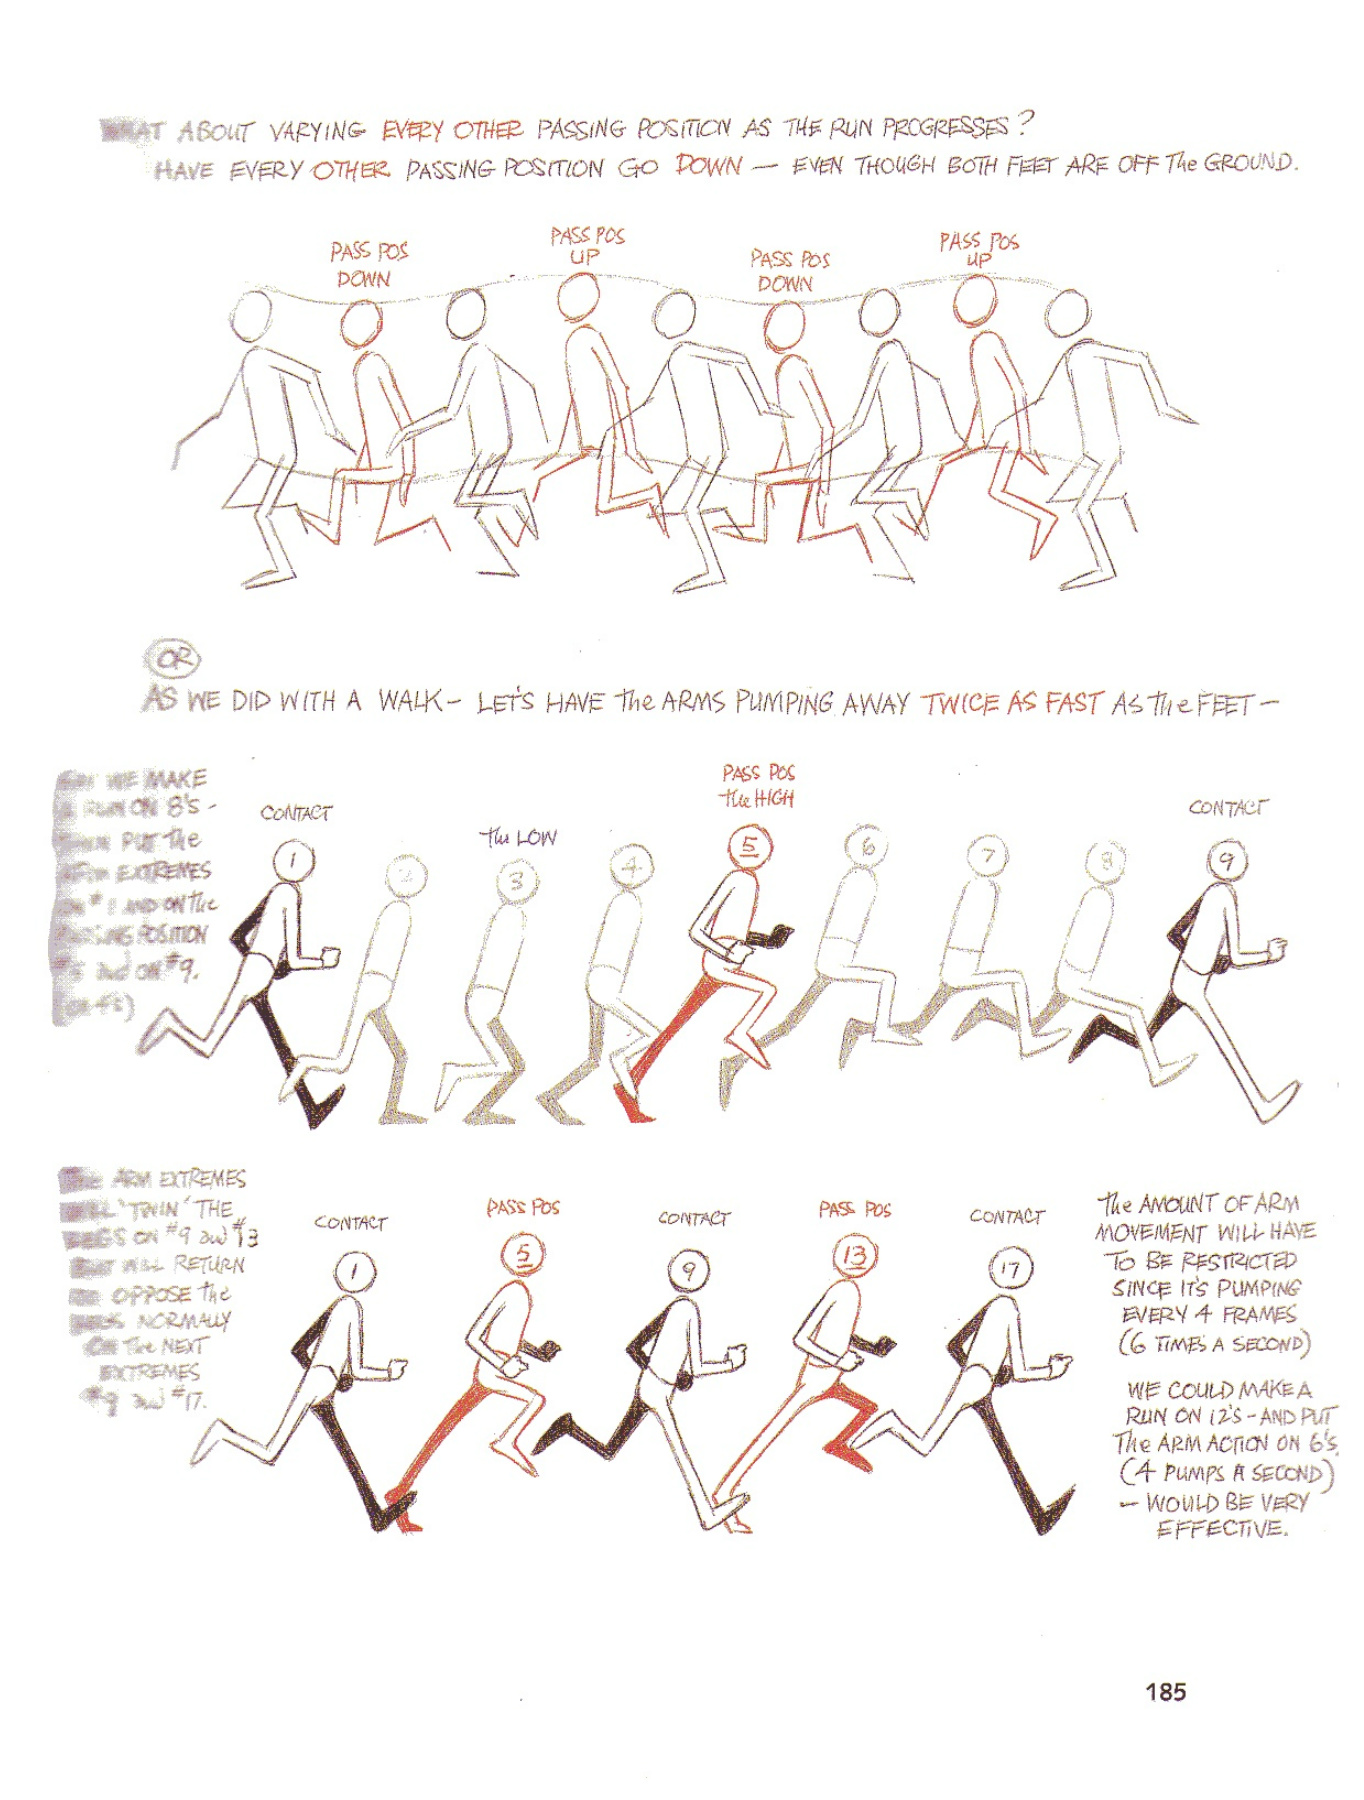 WHAT ABOUT VARYING EVERY OTHER PASSING POSITION AS THE RUN PROGRESSES?
HAVE EVERY OTHER PASSING POSITION GO DOWN — EVEN THOUGH BOTH FEET ARE OFF THE GROUND.
PASS POS
DOWN
PASS POS
UP
PASS POS
DOWN
PASS POS
UP
OR
AS WE DID WITH A WALK – LET'S HAVE THE ARMS PUMPING AWAY TWICE AS FAST AS THE FEET –
WE MAKE
RUN ON 8'S –
PUT THE
EXTREMES
AND ON THE
POSITION
ON #9.
CONTACT
THE LOW
PASS POS
THE HIGH
CONTACT
1
2
3
4
5
6
7
8
9
THE ARM EXTREMES
WILL 'TWIN' THE
LEGS ON #9 and #13
BUT WILL RETURN
OPPOSE the
LEGS NORMALLY
ON THE NEXT
EXTREMES
#9 and #17.
CONTACT
PASS POS
CONTACT
PASS POS
CONTACT
1
5
9
13
17
THE AMOUNT OF ARM
MOVEMENT WILL HAVE
TO BE RESTRICTED
SINCE IT'S PUMPING
EVERY 4 FRAMES
(6 TIMES A SECOND)
WE COULD MAKE A
RUN ON 12'S – AND PUT
THE ARM ACTION ON 6's.
(4 PUMPS A SECOND)
– WOULD BE VERY
EFFECTIVE.
185